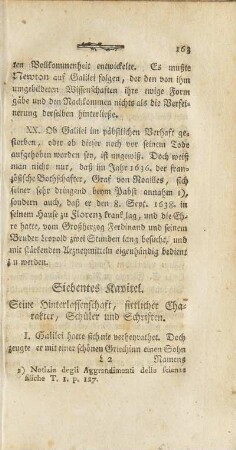 163
ten Vollkommenheit entwickelte. Es mußte
Newton auf Galilei folgen, der den von ihm
umgebildeten Wissenschaften ihre ewige Form
gäbe und den Nachkommen nichts als die Verfei-
nerung derselben hinterließe.
XX. Ob Galilei im päbstlichen Verhaft ge-
storben, oder ob dieser noch vor seinem Tode
aufgehoben worden sey, ist ungewiß. Doch weiß
man nicht nur, daß im Jahr 1636. der fran-
zösische Bothschafter, Graf von Noailles, sich
seiner sehr dringend beym Pabst annahm 1),
sondern auch, daß er den 8. Sept. 1638. in
seinem Hause zu Florenz krank lag, und die Eh-
re hatte, vom Großherzog Ferdinand und seinem
Bruder Leopold zwei Stunden lang besuche, und
mit stärkenden Arzneymitteln eigenhändig bedient
zu werden.
Siebentes Kapitel.
Seine Hinterlassenschaft, sittlicher Cha-
rakter, Schüler und Schriften.
I. Galilei hatte sich nie verheyrathet. Doch
zeugte er mit einer schönen Griechinn einen Sohn
L 2 Namens
1) Notizie degli Aggrandimenti delle scienze
fisiche T. I. p. 127.